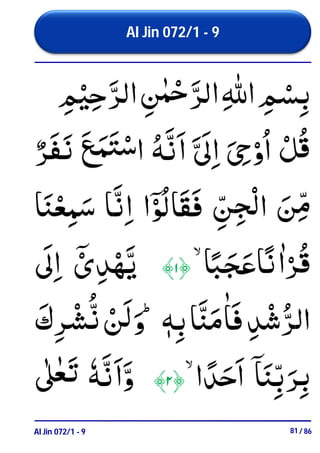 Al Jin 072/1 - 9
بِسْمِ اللهِ الرَّحْمٰنِ الرَّحِيْمِ
قُلْ اُوْحِيَ اِلَيَّ اَنَّهُ اسْتَمَعَ نَفَرٌ
مِّنَ الْجِنِّ فَقَالُوْٓا اِنَّا سَمِعْنَا
قُرْاٰنًا عَجَبًا ۙ ﴿۱﴾ يَّهْدِيْٓ اِلَى
الرُّشْدِ فَاٰمَنَّا بِهٖ ؕ وَلَنْ نُّشْرِكَ
بِرَبِّنَآ اَحَدًا ۙ ﴿۲﴾ وَّاَنَّهٗ تَعٰلٰى
Al Jin 072/1 - 9 81 / 86